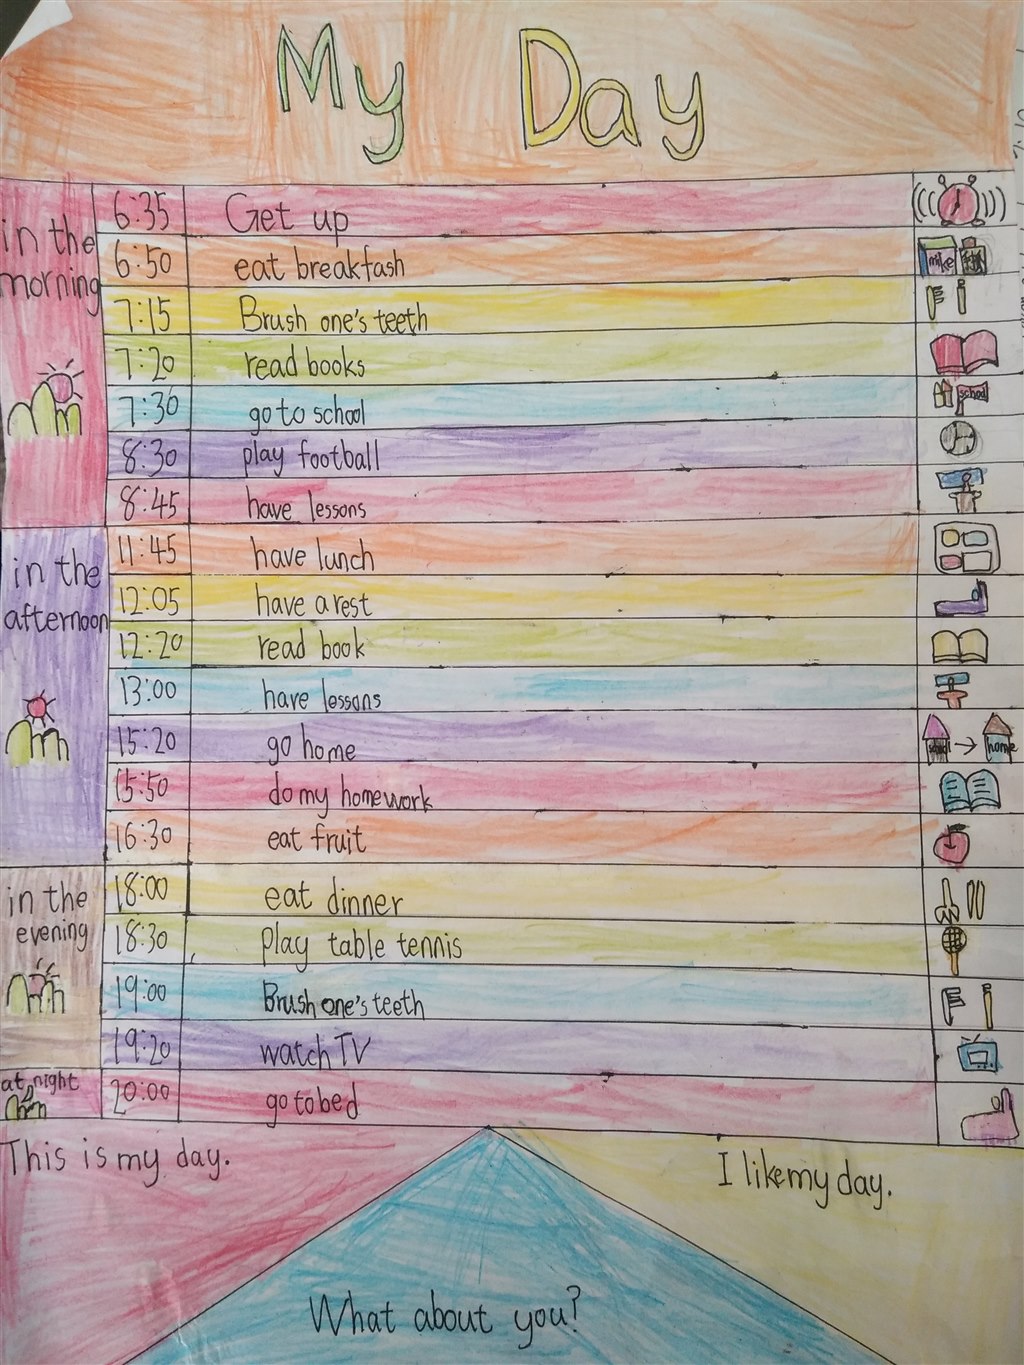 My Day
in the
morning
6:35 Get up
6:50 eat breakfash
milk
7:15 Brush one's teeth
7:20 read books
7:30 go to school
school
8:30 play football
8:45 have lessons
in the
afternoon
11:45 have lunch
12:05 have a rest
12:20 read book
13:00 have lessons
15:20 go home
school → home
15:50 do my homework
16:30 eat fruit
in the
evening
18:00 eat dinner
18:30 play table tennis
19:00 Brush one's teeth
19:20 watch TV
at night
20:00 go to bed
This is my day.
I like my day.
What about you?